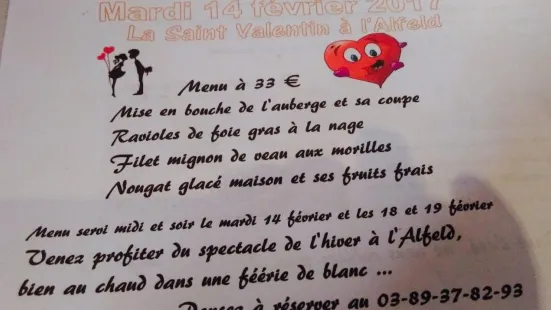 Mardi 14 février 2017
La Saint Valentin à l'Alfeld
Menu à 33 €
Mise en bouche de l'auberge et sa coupe
Ravioles de foie gras à la nage
Filet mignon de veau aux morilles
Nougat glacé maison et ses fruits frais
Menu servi midi et soir le mardi 14 février et les 18 et 19 février
Venez profiter du spectacle de l'hiver à l'Alfeld,
bien au chaud dans une féérie de blanc ...
Pensez à réserver au 03-89-37-82-93